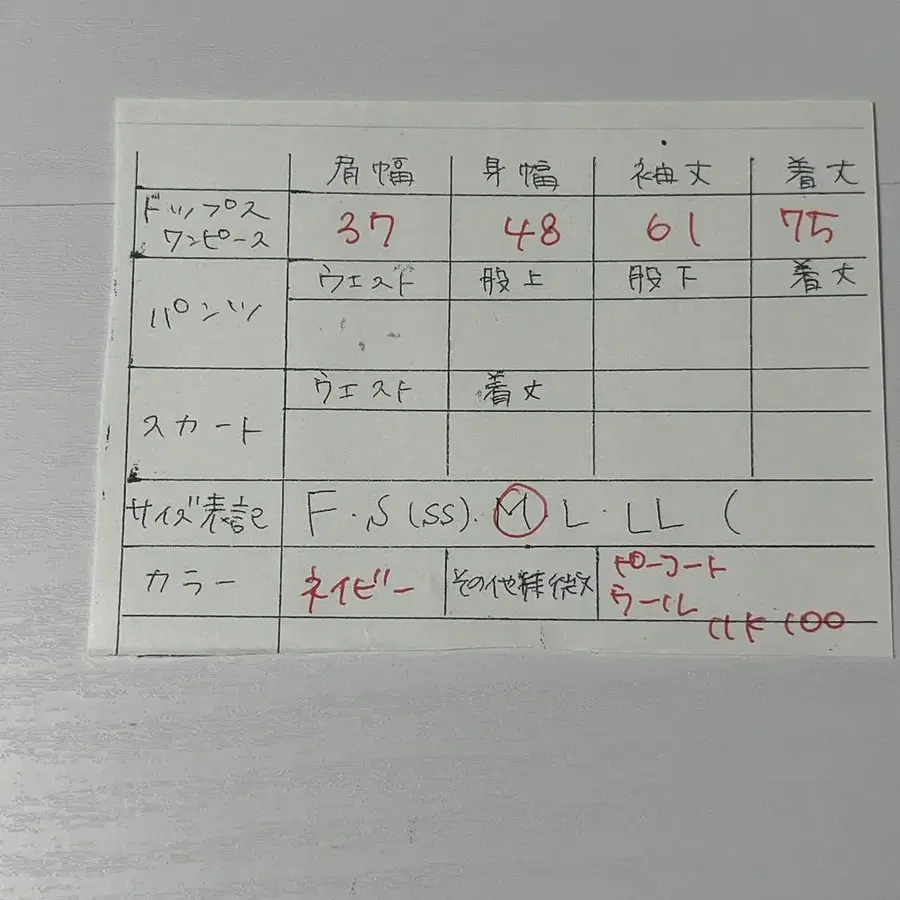 肩幅 身幅 袖丈 着丈
トップス
ワンピース
37 48 61 75
パンツ
ウエスト 股上 股下 着丈
スカート
ウエスト 着丈
サイズ表記 F・S(SS)・M L・LL (
カラー ネイビー その他
ピーコート
ウール
100